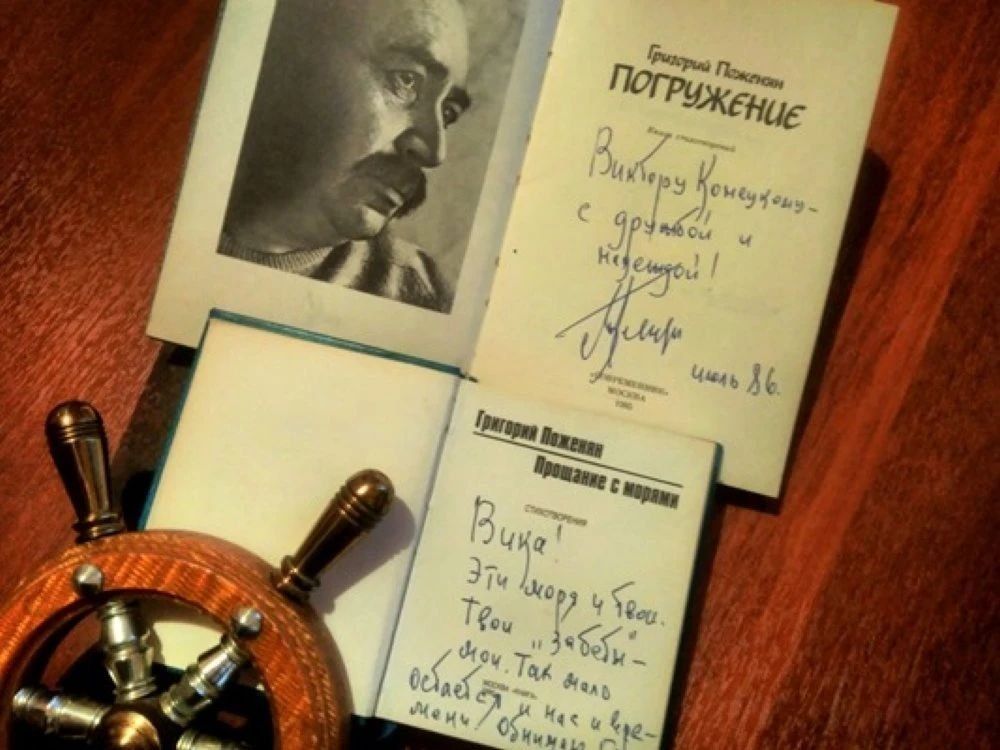 Григорий Поженян
ПОГРУЖЕНИЕ
Книга стихотворений
Виктору Конецкому -
с дружбой и
надеждой!
июль 86.
"СОВРЕМЕННИК"
МОСКВА
Григорий Поженян
Прощание с морями
СТИХОТВОРЕНИЯ
Вика!
Эти моря и твои.
Твои „забеги" -
мои. Так мало
МОСКВА «КНИГА»
остается и нас и вре-
мени Обнимаю